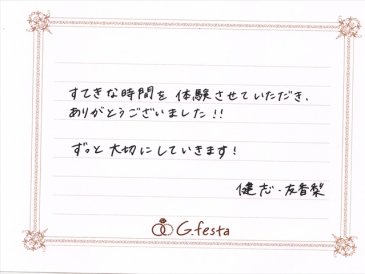 すてきな時間を体験させていただき、
ありがとうございました!!
ずっと大切にしていきます!
健志・友香梨
G.festa